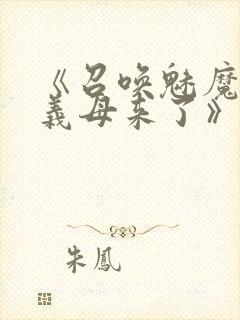 《召唤魅魔
義母来了》
朱鳳